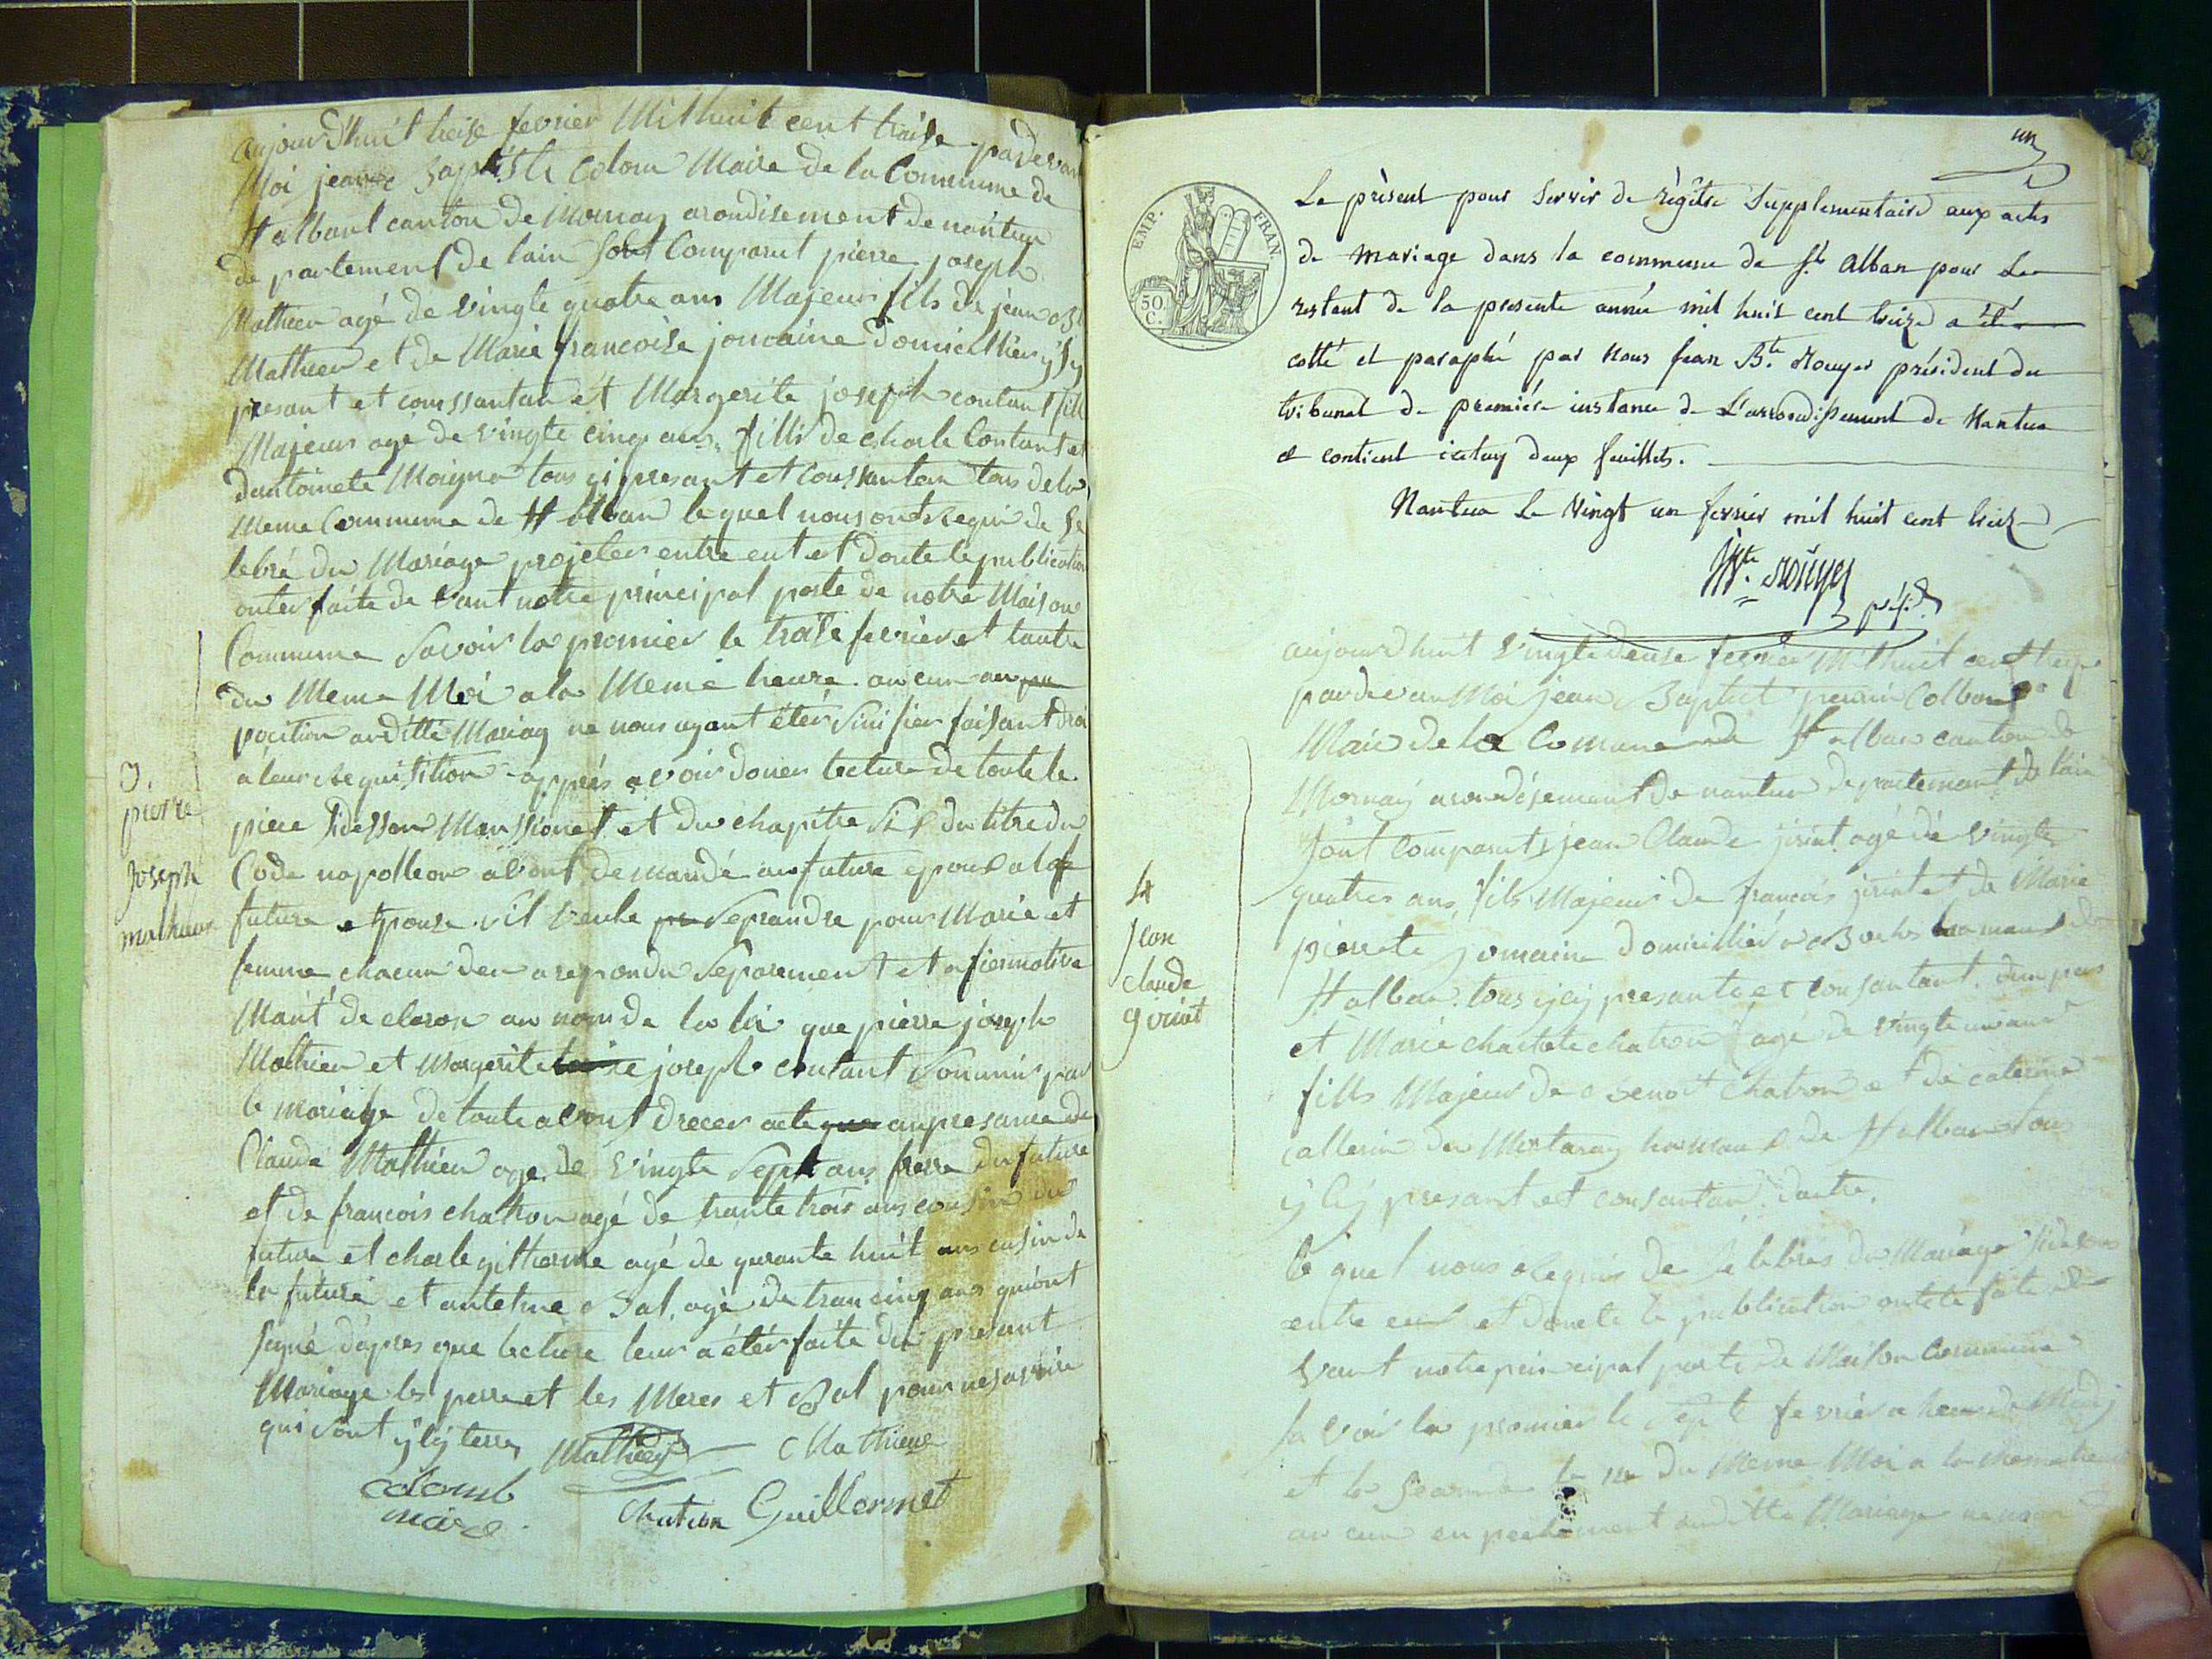 aujourd'huit treise fevrier Mil huit cent traise pardevan
Moi jean Baptiste Colom Maire de la Commune de
St alban canton de Mornay arondisement de nantua
departement de lain sont Comparut pierre joseph
Mathieu agé de vingte quatre ans Majeur fils de jean
Mathieu et de Marie francoise jomaine domicillier y
presant et conssantan et Margerite joseph contant fill
Majeur age de vingte cinq ans fille de charle Contant et
dantoinete Moigna tous yi presant et conssantan tous de la
Meme Commune de St alban le quel nous ont requi de se
lebré du Mariage projeter entre eut et donte le publication
onter faite de vant notre principal porte de notre Maison
Commune Savoir la premier le traise fevrier et lautre
du Meme Moi a la Meme heure aucun au
position auditte Mariag ne nous ayant étér Sinifier faisant droi
a leur Requisition appres avoir doner lecture de toute le
piece sidessu Manssionet et du chapitre Sis du titre du
Code napolleon avont demandé au future epous a la
future epouse sil veule se prandre pour Marie et
femme chacun deu a repondu Separement et afiermative
Mant declaron au nom de la loi que pierre joseph
Mathieu et Margerite joseph contant Son unis par
le mariage de toute avont drecer acte an presance de
Claude Mathieu age de vingte Sept ans frere du future
et de francois chatron agé de trante trois ans cousin du
future et charle gilherme agé de quarante huit ans cusin de
la future et antelme Bal agé de tran cinq ans qui ont
signé dapres que lecture leur a étér faite du presant
Mariage les perre et les Meres et Bal pour ne savoire
qui sont y
Mathieu Mathieu
colomb
maire
Chatron Guillermet
3.
pierre
joseph
mathieu
un
EMP. FRAN.
50 C.
Le présent pour servir de régitre Supplementaire aux actes
de mariage dans la commune de St. alban pour le
restant de la presente année mil huit cent treize a été
cotté et paraphé par nous jean Bte. Rouyer président du
tribunal de premiére instance de L'arrondissement de Nantua
et contient icelui deux feuillets.
Nantua Le Vingt un fevrier mil huit cent treize
JBte. Rouyer
présid
aujourdhuit vingte deuse fevrier Mil huit cent treze
pardevan Moi jean Baptist perrin Colbom
Maire de la Comune de St alban canton de
Mornay arondisement de nantua departemant de lain
sont Comparut jean Claude jiriat agé de vingte
quatres ans fils Majeur de francois jiriat et de Marie
pierrete jomaine domicillier a Boches hamau de
St alban tous ycy presante et consantant dune pars
et Marie charlote chatron agé de vingte un ans
fills Majeur de Benoit chatron et de caterine
callerin du Mortaray hamau de St alban tous
y cy presant et consantan dautre.
le quel nous Requis de selebres du Mariage
entre eut et donete le publication
vant notre prin cipal porte de Maison Commune
sa voir la premier le Sept fevrier a heure de Midy
et la Seconde le du Meme Moi a la meme heure
au cun en pechement auditte Mariage ne nous
4
jean
claude
giriat